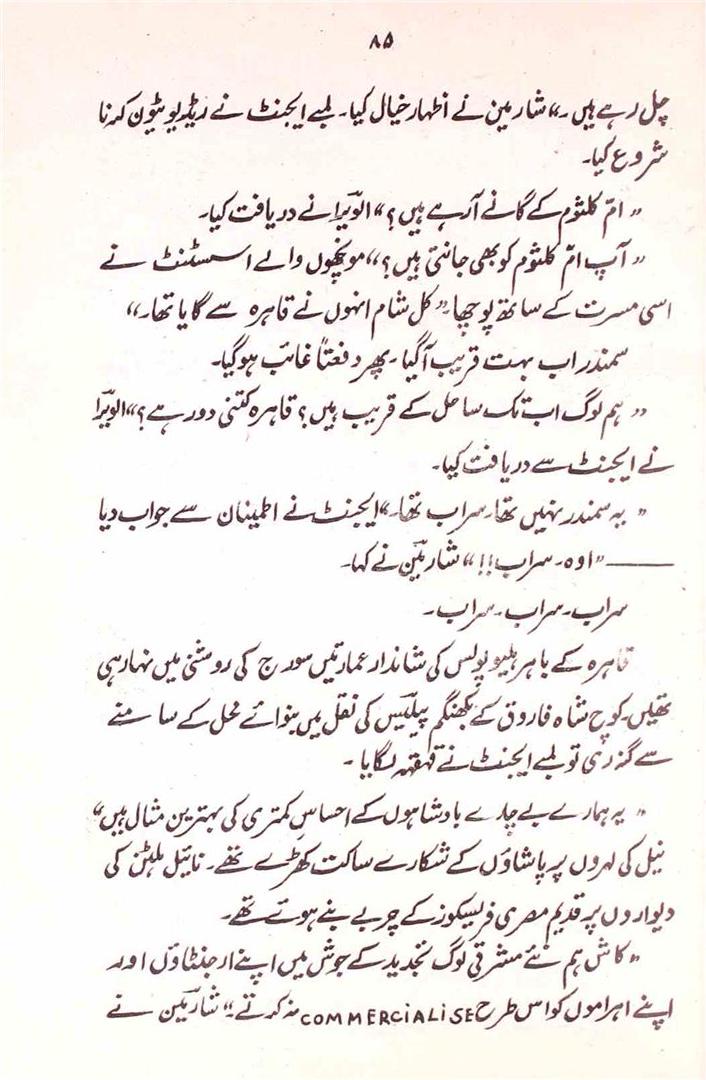 ۸۵
چل رہے ہیں۔“ شارمین نے اظہار خیال کیا۔ لمبے ایجنٹ نے ریڈیو ٹیون کرنا
شروع کیا۔
”امّ کلثوم کے گانے آرہے ہیں؟“ الویرا نے دریافت کیا۔
”آپ امّ کلثوم کو بھی جانتی ہیں؟“ مونچھوں والے اسسٹنٹ نے
اسی مسرت کے ساتھ پوچھا۔ ”کل شام انہوں نے قاہرہ سے گایا تھا۔“
سمندر اب بہت قریب آگیا۔ پھر دفعتاً غائب ہوگیا۔
”ہم لوگ اب تک ساحل کے قریب ہیں؟ قاہرہ کتنی دور ہے؟“ الویرا
نے ایجنٹ سے دریافت کیا۔
”یہ سمندر نہیں تھا۔ سراب تھا۔“ ایجنٹ نے اطمینان سے جواب دیا
——— ”اوہ۔ سراب!!“ شارمین نے کہا۔
سراب۔ سراب۔ سراب۔
قاہرہ کے باہر ہلیوپولس کی شاندار عمارتیں سورج کی روشنی میں نہا رہی
تھیں۔ کوچ شاہ فاروق کے بکھنگم پیلیس کی نقل میں بنوائے محل کے سامنے
سے گزری تو لمبے ایجنٹ نے قہقہہ لگایا۔
”یہ ہمارے بے چارے بادشاہوں کے احساسِ کمتری کی بہترین مثال ہیں“
نیل کی لہروں پر پاشاؤں کے شکارے ساکت کھڑے تھے۔ نائیل ہلٹن کی
دیواروں پر قدیم مصری فریسکوز کے چربے بنے ہوئے تھے۔
”کاش ہم نئے مشرقی لوگ تجدید کے جوش میں اپنے ارجنٹاؤں اور
اپنے اہراموں کو اس طرح COMMERCiALiSE نہ کرتے۔“ شارمین نے